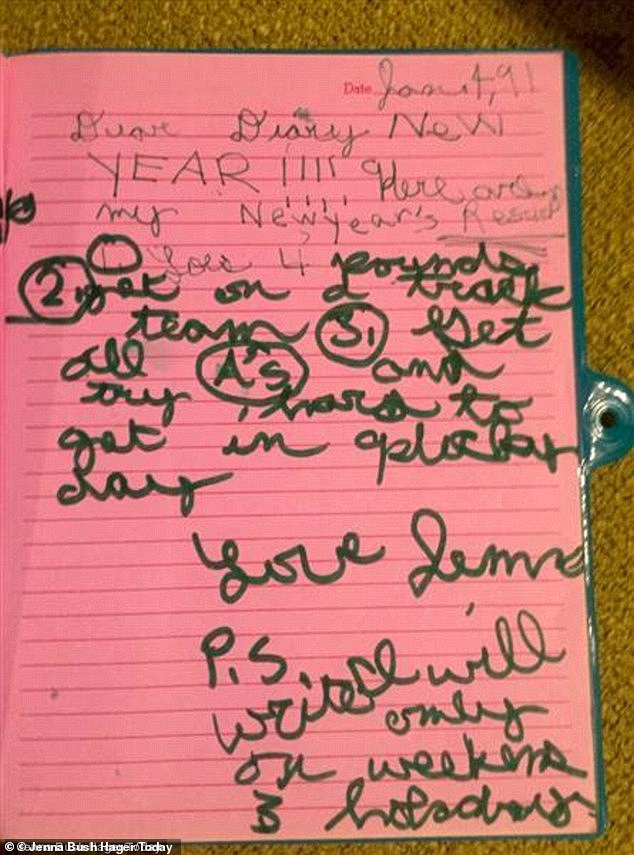 Date Jan 4, 91
Dear Diary New
YEAR !!!! Here are
my New year's
1 Lose 4 pounds
2, get on a track
team 3, Get
all A's and
try hard to
get in
day
Love Jenna
P.S. I will
write only
on weekens
& holodays
© Jenna Bush Hager Today